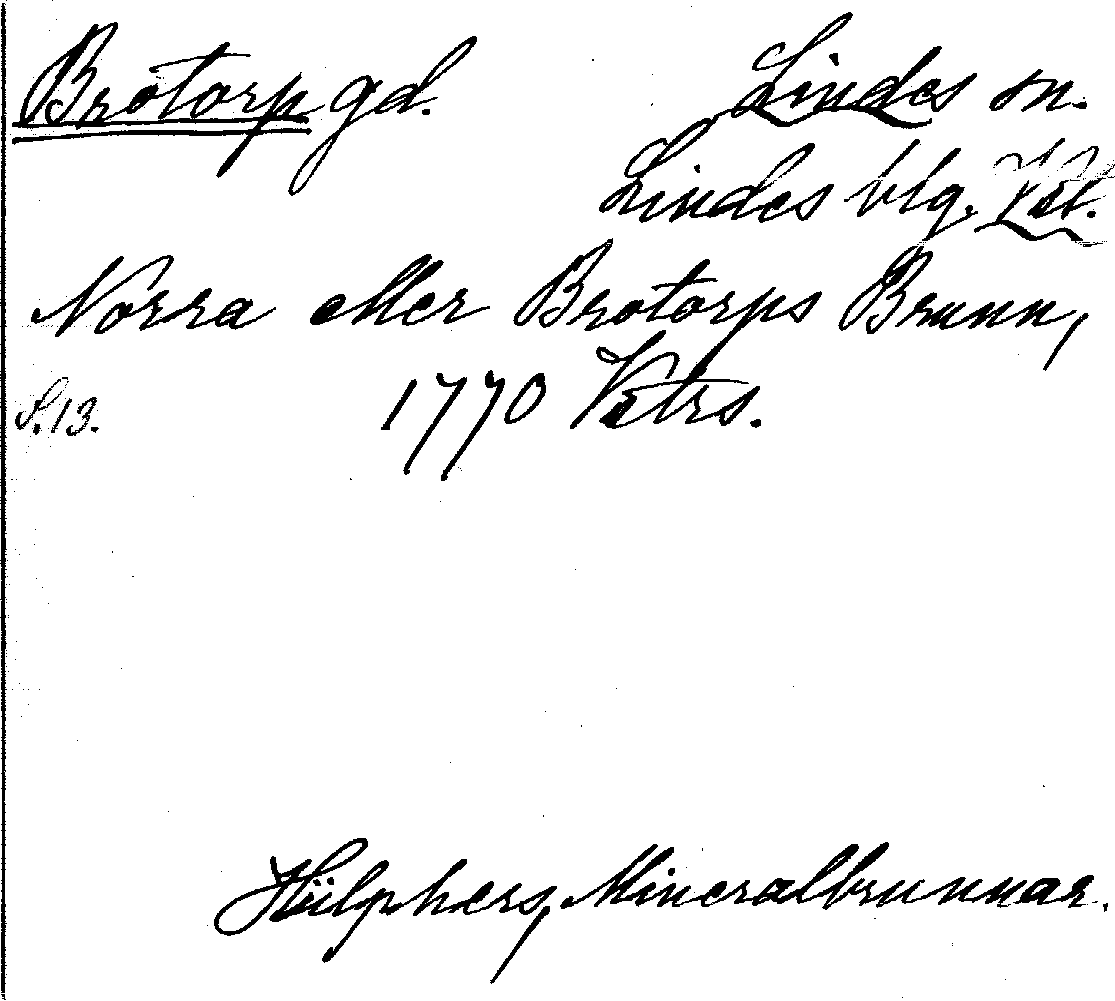 Brotorp gd. Lindes sn.
Lindes blg. Vstl.
Norra eller Brotorps Brunn,
S. 13. 1770 Vstrs.
Hülphers, Mineralbrunnar.